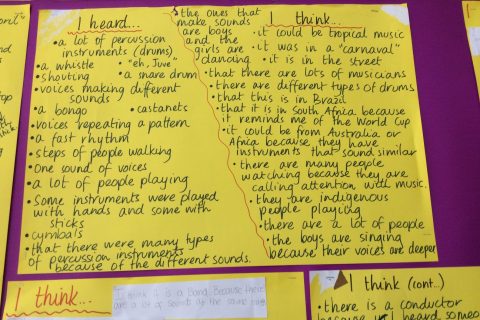 I heard...
• a lot of percussion
instruments (drums)
• a whistle • "eh, Juve"
• shouting • a snare drum
• voices making different
sounds
• a bongo • castanets
• voices repeating a pattern
• a fast rhythm
• steps of people walking
• One sound of voices
• a lot of people playing
• Some instruments were played
with hands and some with
sticks
• cymbals
• that there were many types
of percussion instruments
because of the different sounds.
• the ones that
make sounds
are boys
and the
girls are
dancing
I think...
• it could be tropical music
• it was in a "carnaval"
• it is in the street
• that there are lots of musicians
• there are different types of drums
• that this is in Brazil
• that it is in South Africa because
it reminds me of the World Cup
• it could be from Australia or
Africa because they have
instruments that sound similar
• there are many people
watching because they are
calling attention with music.
• they are indigenous
people playing
• there are a lot of people
• the boys are singing
because their voices are deeper
I think...
I think it is a band. Because there
are a lot of sounds at the same time
I think (cont..)
• there is a conductor
because I heard